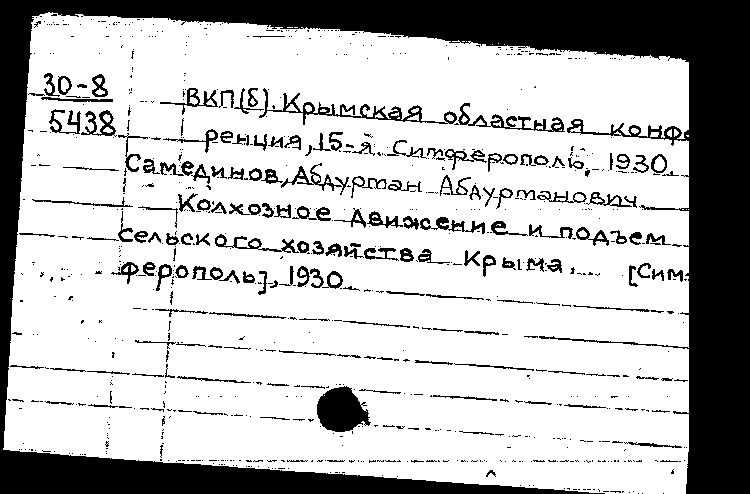 30-8
5438
ВКП(б). Крымская областная конфе
ренция, 15-я. Симферополь, 1930.
Самединов, Абдурман Абдурманович.
Колхозное движение и подъем
сельского хозяйства Крыма. [Сим-
ферополь], 1930.